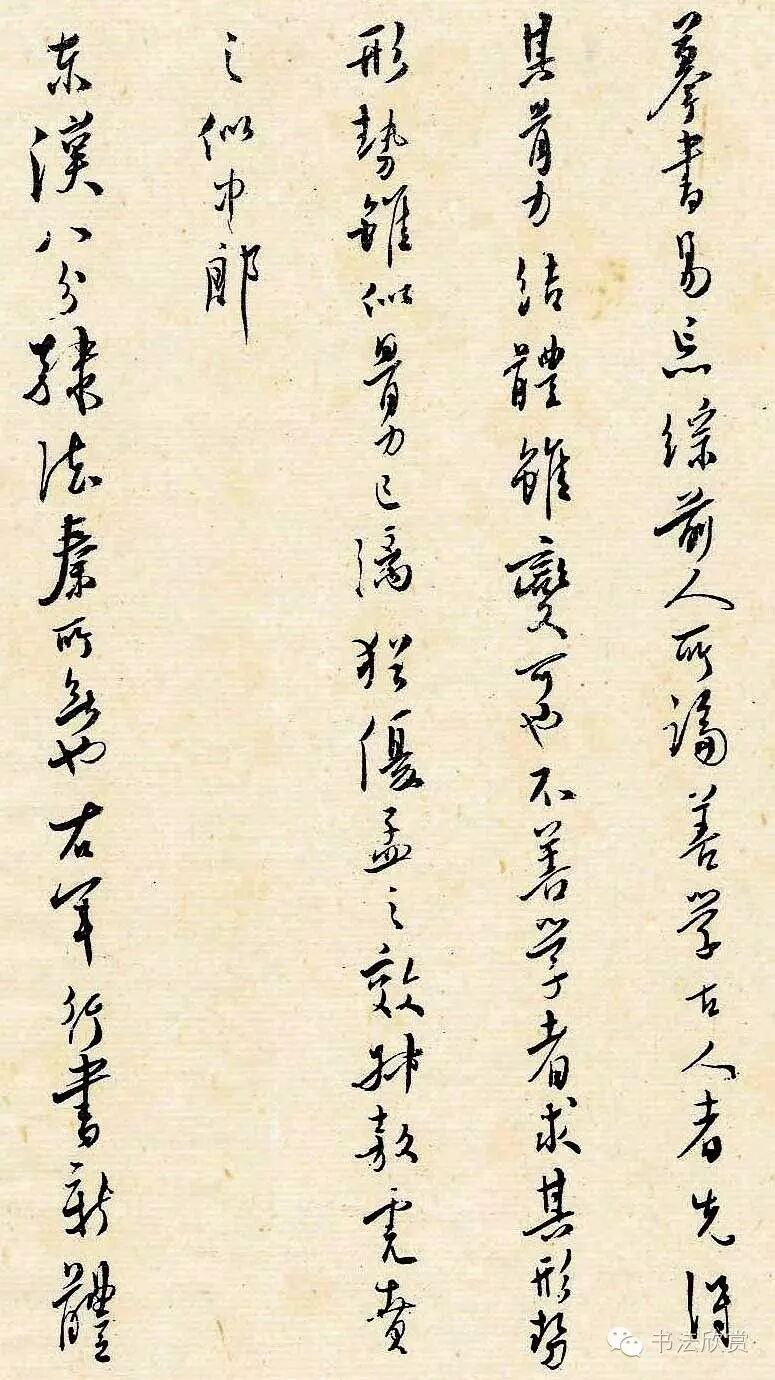 摹書易忘綜前人所論善学古人者先得
其骨力結體雖變可也不善学者求其形勢
形勢雖似骨力已漓犹優孟之效孙敖虎賁
之似中郎
東漢八分隸法秦所無也右軍行書新體
书法欣赏